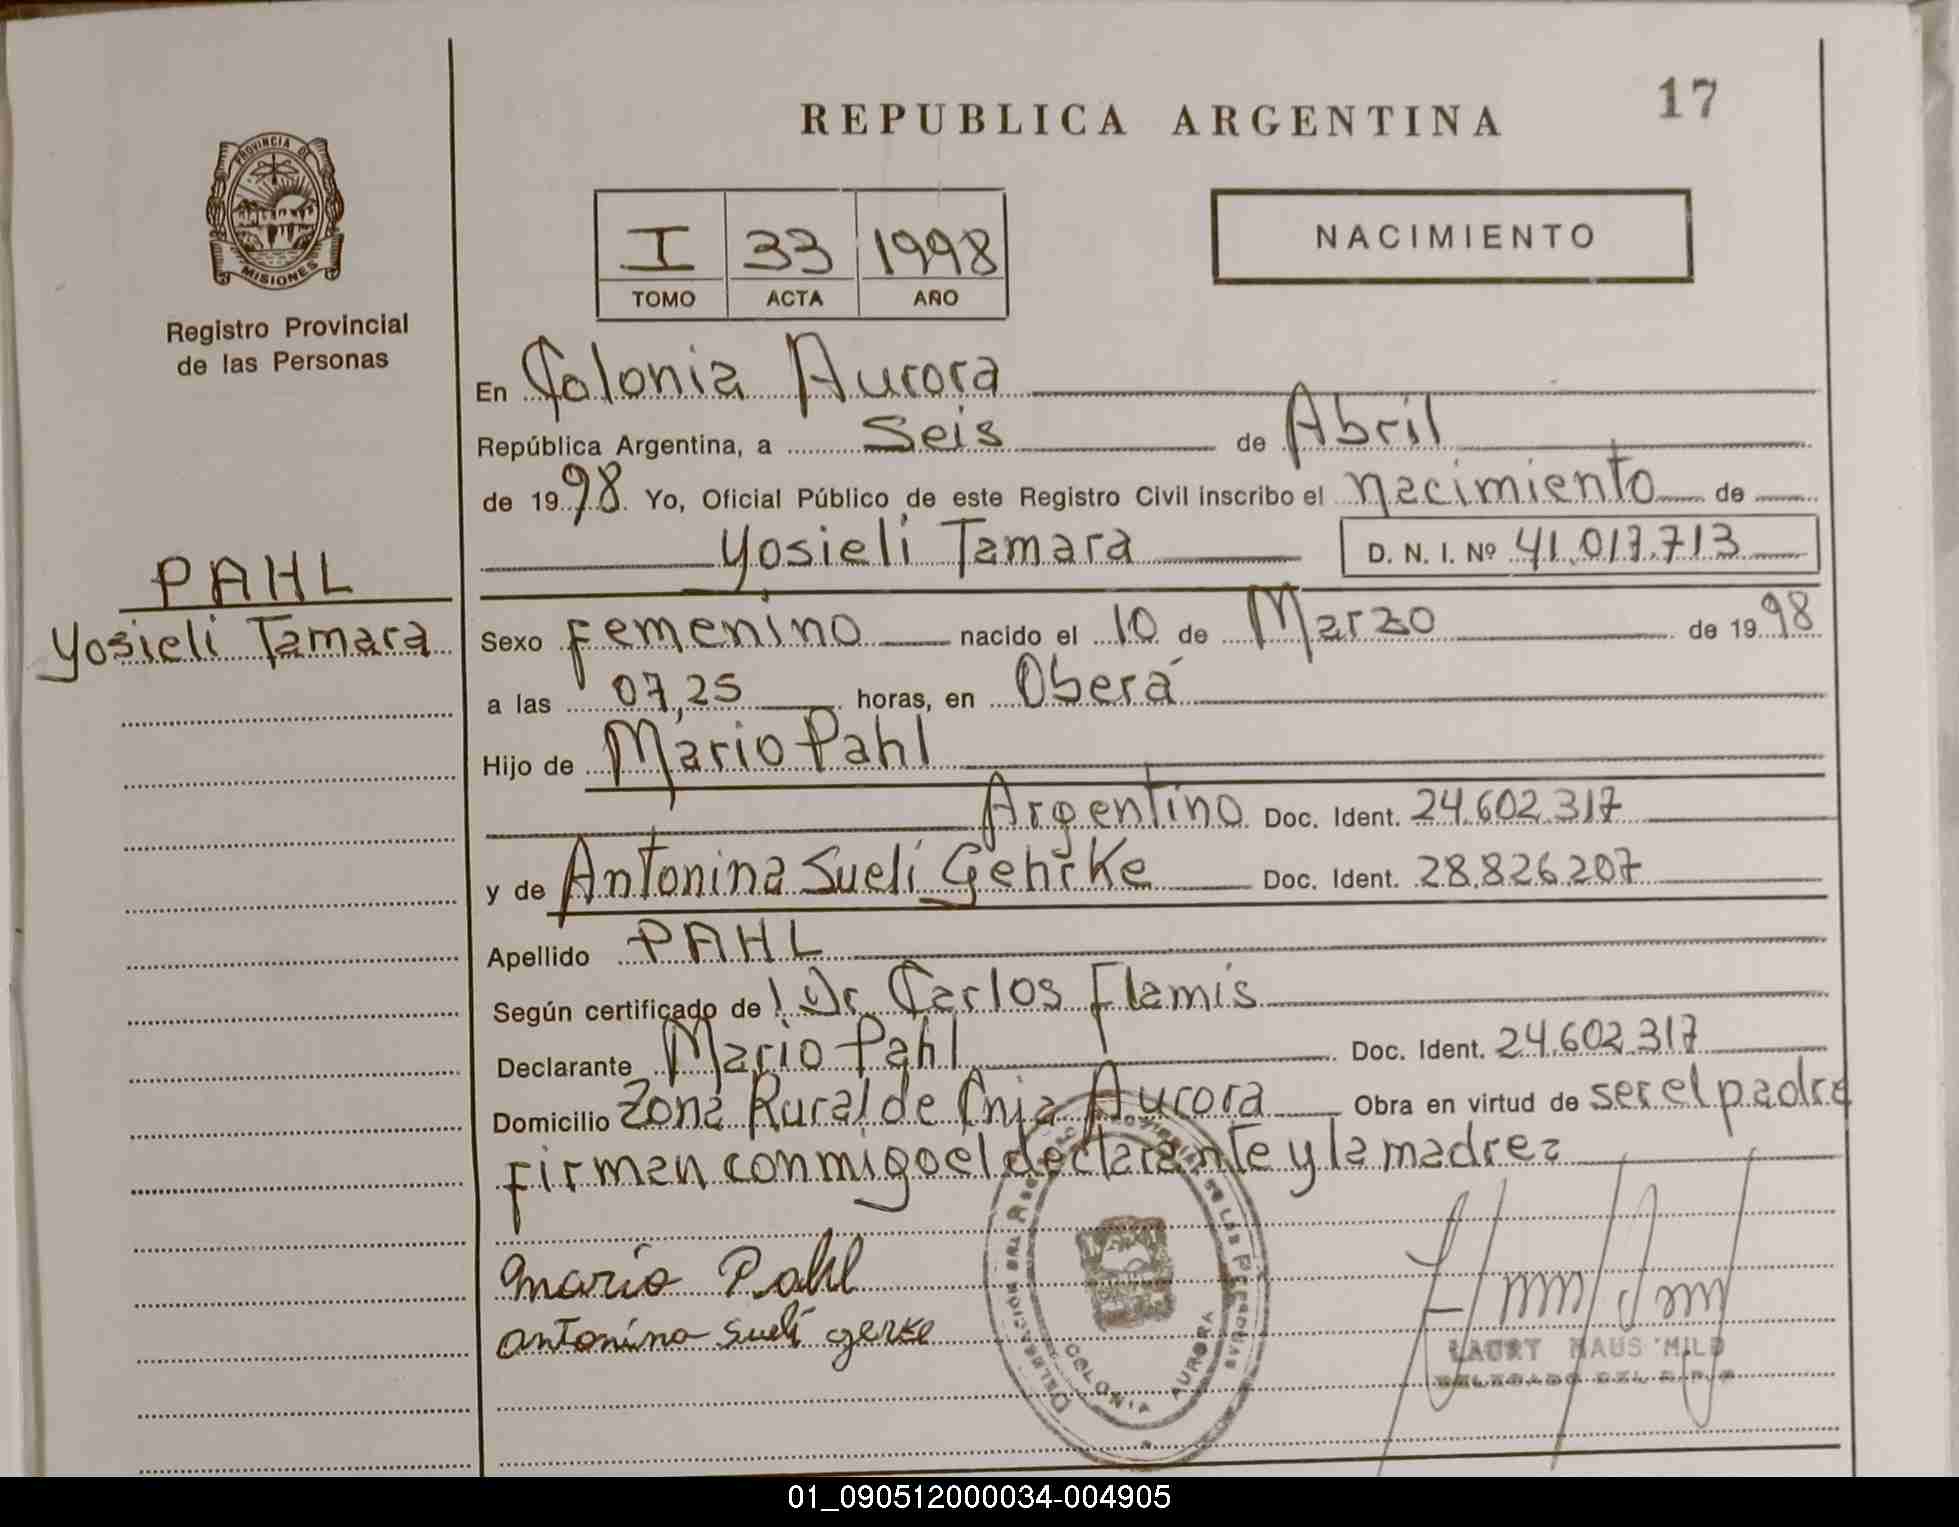 17
REPUBLICA ARGENTINA
PROVINCIA DE
MISIONES
Registro Provincial
de las Personas
I 33 1998
TOMO ACTA AÑO
NACIMIENTO
En Colonia Aurora
República Argentina, a Seis de Abril
de 1998 Yo, Oficial Público de este Registro Civil inscribo el nacimiento de
Yosieli Tamara D. N. I. Nº 41.017.713
PAHL
Yosieli Tamara
Sexo Femenino nacido el 10 de Marzo de 1998
a las 07,25 horas, en Oberá
Hijo de Mario Pahl
Argentino Doc. Ident. 24.602.317
y de Antonina Sueli Gehrke Doc. Ident. 28.826.207
Apellido PAHL
Según certificado de Dr. Carlos Flamis
Declarante Mario Pahl Doc. Ident. 24.602.317
Domicilio Zona Rural de Cnia Aurora Obra en virtud de ser el padre
Firman conmigo el declarante y la madre
Mario Pahl
antonina sueli gerke
COLONIA AURORA
01_090512000034-004905